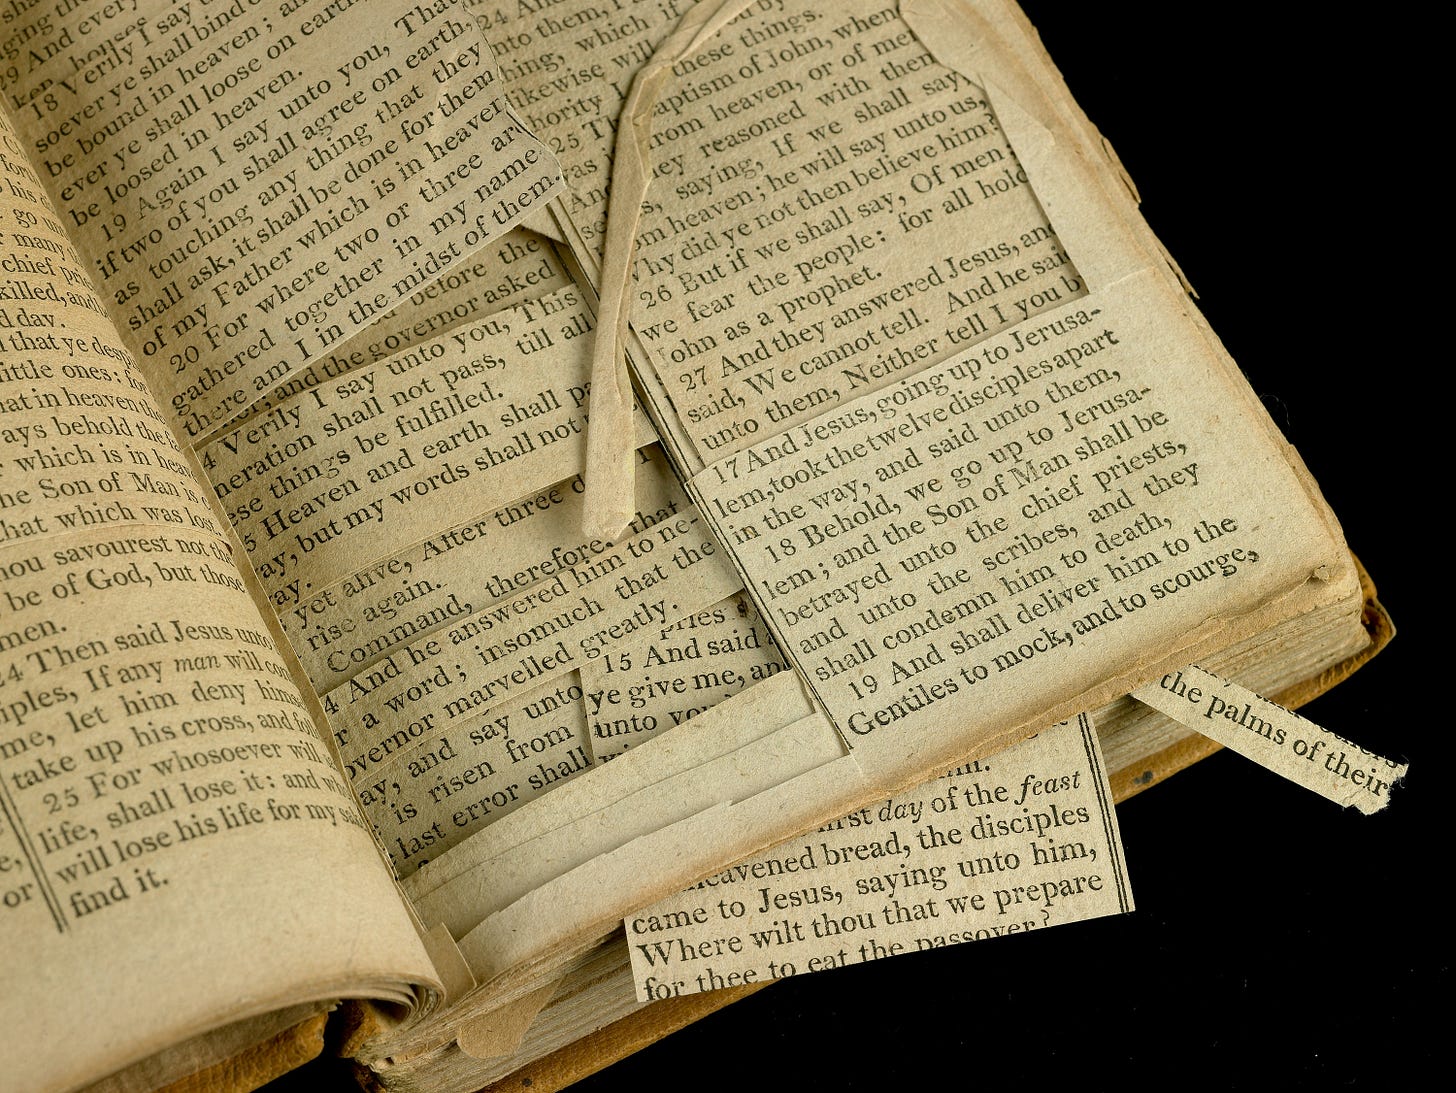 29 And every
18 Verily I say
soever ye shall bind on earth
be bound in heaven; and
ever ye shall loose on earth
be loosed in heaven.
19 Again I say unto you, That
if two of you shall agree on earth,
as touching any thing that they
shall ask, it shall be done for them
of my Father which is in heaven.
20 For where two or three are
gathered together in my name
there am I in the midst of them.
before the
and the governor asked
4 Verily I say unto you, This
neration shall not pass, till all
ese things be fulfilled.
5 Heaven and earth shall pa
ay, but my words shall not
ay.
yet alive, After three d
rise again.
Command, therefore, that
4 And he answered him to ne-
r a word; insomuch that the
overnor marvelled greatly.
ay, and say unto
is risen from
last error shall
pries
15 And said
ye give me, and
unto you
many
chief prie
killed, and
d day.
that ye desp
ittle ones: for
hat in heaven the
ays behold the fa
r which is in heav
he Son of Man is c
hat which was lost
hou savourest not th
be of God, but those
men.
24 Then said Jesus unto
iples, If any man will com
me, let him deny himse
take up his cross, and fol
25 For whosoever will
life, shall lose it: and wh
will lose his life for my sak
find it.
24 And
nto them, I
hing, which if
ikewise will
hority I
these things.
25 Th
aptism of John, when
as i
rom heaven, or of men
And
ey reasoned with them
s, saying, If we shall say,
om heaven; he will say unto us,
Why did ye not then believe him?
26 But if we shall say, Of men;
we fear the people: for all hold
John as a prophet.
27 And they answered Jesus, and
said, We cannot tell. And he said
unto them, Neither tell I you b
17 And Jesus, going up to Jerusa-
lem, took the twelve disciples apart
in the way, and said unto them,
18 Behold, we go up to Jerusa-
lem; and the Son of Man shall be
betrayed unto the chief priests,
and unto the scribes, and they
shall condemn him to death,
19 And shall deliver him to the
Gentiles to mock, and to scourge,
the palms of their
first day of the feast
leavened bread, the disciples
came to Jesus, saying unto him,
Where wilt thou that we prepare
for thee to eat the passover?